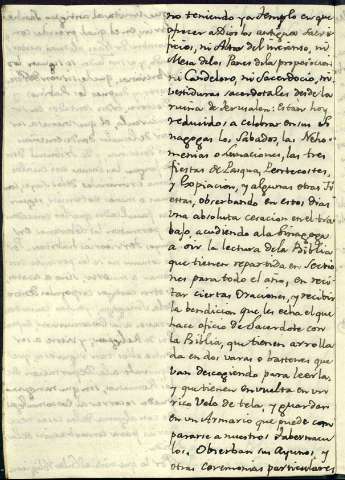 no teniendo ya Templo en que
ofrecer a Dios los antiguos Sacri-
ficios, ni Altar del incienso, ni
Mesa de los Panes de la proposicion
ni Candelero, ni Sacerdocio, ni
vestiduras sacerdotales desde la
ruina de Jerusalen: Estan hoy
reducidos a celebrar en sus si-
nagogas los Sabados, las Neho-
menias o Lunaciones, las tres
fiestas de Pasqua, Pentecostes,
y Expiacion, y algunas otras Fi-
estas, observando en estos dias
una absoluta cesacion en el tra-
bajo, acudiendo a la Sinagoga
a oir la lectura de la Biblia
que tienen repartida en Sectio-
nes para todo el año, en reci-
tar ciertas Oraciones, y recibir
la bendicion que les echa el que
hace oficio de Sacerdote con
la Biblia, que tienen arrolla-
da en dos varas o bastones que
van descogiendo para leerla,
y que tienen en vuelta en un
rico Velo de tela, y guardan
en un Armario que puede com-
pararse a nuestros Tabernacu-
los. Obserban sus Ayunos, y
otras Ceremonias particulares